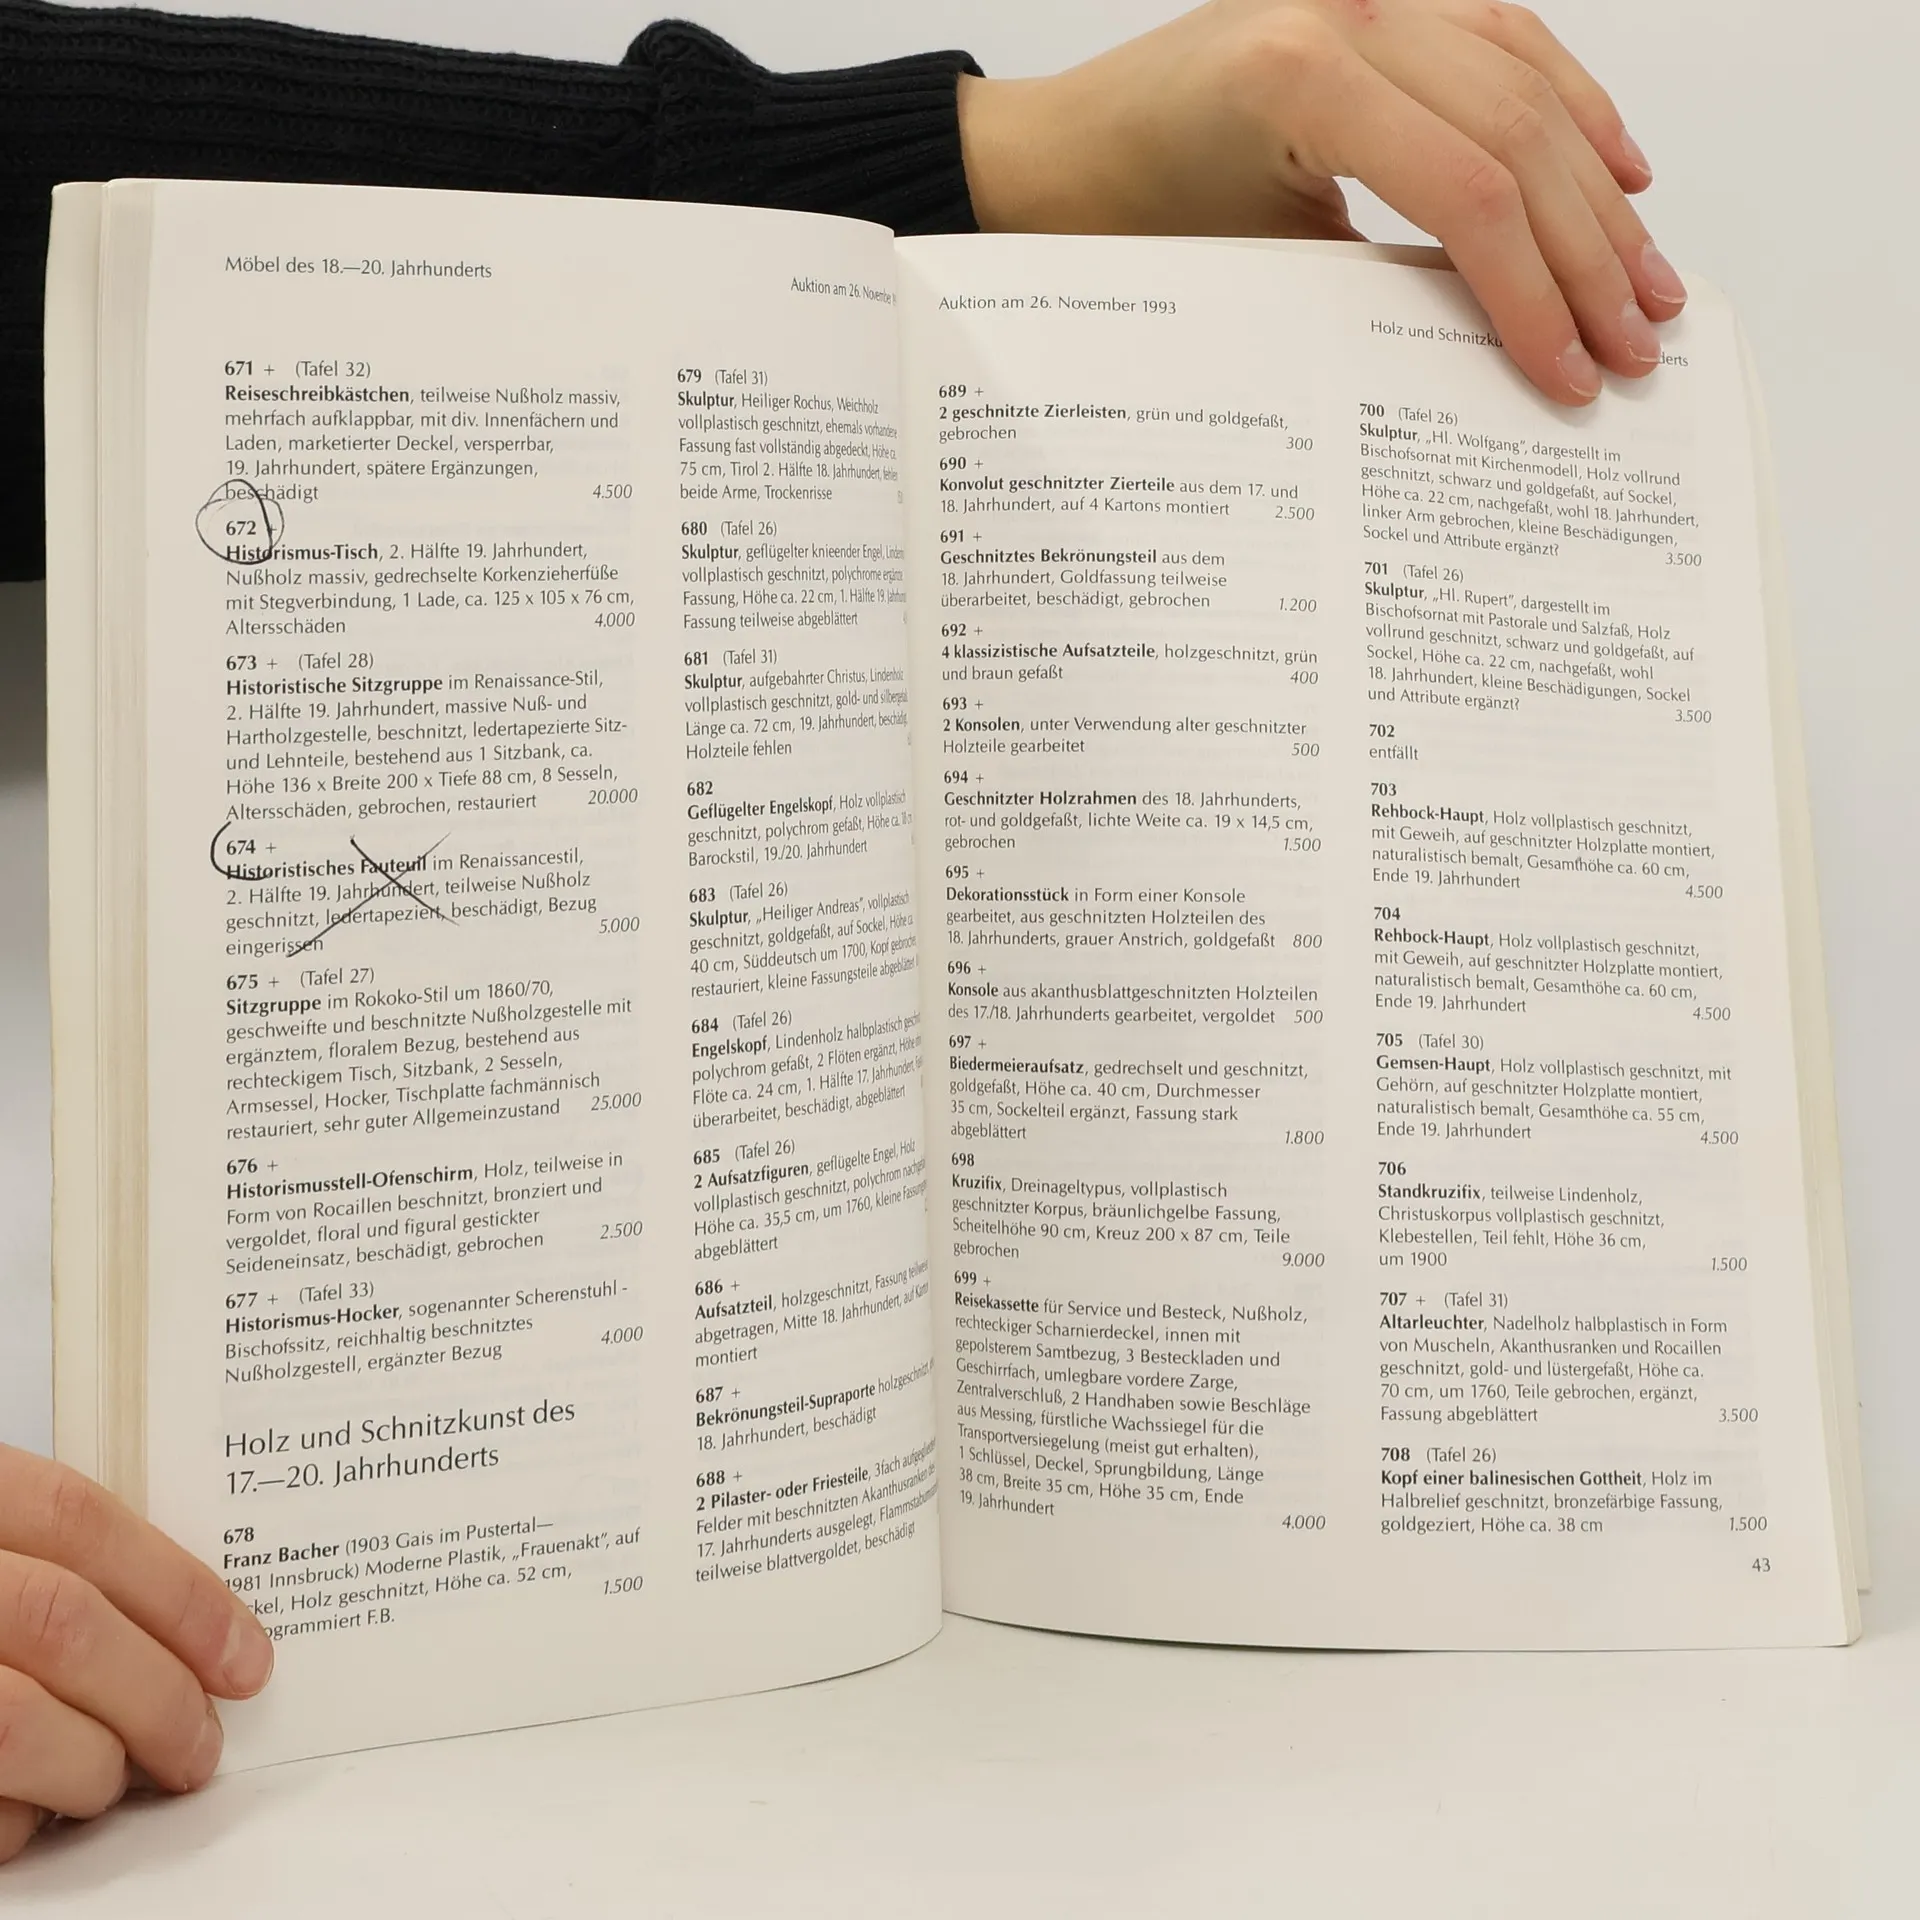 Möbel des 18.—20. Jahrhunderts
Auktion am 26.
671 + (Tafel 32)
Reiseschreibkästchen, teilweise Nußholz massiv,
mehrfach aufklappbar, mit div. Innenfächern und
Laden, marketierter Deckel, versperrbar,
19. Jahrhundert, spätere Ergänzungen,
beschädigt 4.500
672 +
Historismus-Tisch, 2. Hälfte 19. Jahrhundert,
Nußholz massiv, gedrechselte Korkenzieherfüße
mit Stegverbindung, 1 Lade, ca. 125 x 105 x 76 cm,
Altersschäden 4.000
673 + (Tafel 28)
Historistische Sitzgruppe im Renaissance-Stil,
2. Hälfte 19. Jahrhundert, massive Nuß- und
Hartholzgestelle, beschnitzt, ledertapezierte Sitz-
und Lehnteile, bestehend aus 1 Sitzbank, ca.
Höhe 136 x Breite 200 x Tiefe 88 cm, 8 Sesseln,
Altersschäden, gebrochen, restauriert 20.000
674 +
Historistisches Fauteuil im Renaissancestil,
2. Hälfte 19. Jahrhundert, teilweise Nußholz
geschnitzt, ledertapeziert, beschädigt, Bezug
eingerissen 5.000
675 + (Tafel 27)
Sitzgruppe im Rokoko-Stil um 1860/70,
geschweifte und beschnitzte Nußholzgestelle mit
ergänztem, floralem Bezug, bestehend aus
rechteckigem Tisch, Sitzbank, 2 Sesseln,
Armsessel, Hocker, Tischplatte fachmännisch
restauriert, sehr guter Allgemeinzustand 25.000
676 +
Historismusstell-Ofenschirm, Holz, teilweise in
Form von Rocaillen beschnitzt, bronziert und
vergoldet, floral und figural gestickter
Seideneinsatz, beschädigt, gebrochen 2.500
677 + (Tafel 33)
Historismus-Hocker, sogenannter Scherenstuhl -
Bischofssitz, reichhaltig beschnitztes
Nußholzgestell, ergänzter Bezug 4.000
Holz und Schnitzkunst des
17.—20. Jahrhunderts
678
Franz Bacher (1903 Gais im Pustertal—
1981 Innsbruck) Moderne Plastik, „Frauenakt", auf
Holz geschnitzt, Höhe ca. 52 cm,
F.B. 1.500
679 (Tafel 31)
Skulptur, Heiliger Rochus, Weichholz
vollplastisch geschnitzt, ehemals vorhandene
Fassung fast vollständig abgedeckt, Höhe ca.
75 cm, Tirol 2. Hälfte 18. Jahrhundert, fehlen
beide Arme, Trockenrisse
680 (Tafel 26)
Skulptur, geflügelter knieender Engel,
vollplastisch geschnitzt, polychrome
Fassung, Höhe ca. 22 cm, 1. Hälfte 19.
Fassung teilweise abgeblättert
681 (Tafel 31)
Skulptur, aufgebahrter Christus, Lindenholz
vollplastisch geschnitzt, gold- und
Länge ca. 72 cm, 19. Jahrhundert,
Holzteile fehlen
682
Geflügelter Engelskopf, Holz vollplastisch
geschnitzt, polychrom gefaßt, Höhe ca.
Barockstil, 19./20. Jahrhundert
683 (Tafel 26)
Skulptur, „Heiliger Andreas", vollplastisch
geschnitzt, goldgefaßt, auf Sockel, Höhe ca.
40 cm, Süddeutsch um 1700, Kopf gebrochen
restauriert, kleine Fassungsteile abgeblättert
684 (Tafel 26)
Engelskopf, Lindenholz halbplastisch
polychrom gefaßt, 2 Flöten ergänzt, Höhe
Flöte ca. 24 cm, 1. Hälfte 17. Jahrhundert,
überarbeitet, beschädigt, abgeblättert
685 (Tafel 26)
2 Aufsatzfiguren, geflügelte Engel, Holz
vollplastisch geschnitzt, polychrom
Höhe ca. 35,5 cm, um 1760, kleine
abgeblättert
686 +
Aufsatzteil, holzgeschnitzt, Fassung
abgetragen, Mitte 18. Jahrhundert, auf
montiert
687 +
Bekrönungsteil-Supraporte holzgeschnitzt,
18. Jahrhundert, beschädigt
688 +
2 Pilaster- oder Friesteile, 3fach
Felder mit beschnitzten Akanthusranken
17. Jahrhunderts ausgelegt,
teilweise blattvergoldet, beschädigt
Auktion am 26. November 1993
Holz und
689 +
2 geschnitzte Zierleisten, grün und goldgefaßt,
gebrochen 300
690 +
Konvolut geschnitzter Zierteile aus dem 17. und
18. Jahrhundert, auf 4 Kartons montiert 2.500
691 +
Geschnitztes Bekrönungsteil aus dem
18. Jahrhundert, Goldfassung teilweise
überarbeitet, beschädigt, gebrochen 1.200
692 +
4 klassizistische Aufsatzteile, holzgeschnitzt, grün
und braun gefaßt 400
693 +
2 Konsolen, unter Verwendung alter geschnitzter
Holzteile gearbeitet 500
694 +
Geschnitzter Holzrahmen des 18. Jahrhunderts,
rot- und goldgefaßt, lichte Weite ca. 19 x 14,5 cm,
gebrochen 1.500
695 +
Dekorationsstück in Form einer Konsole
gearbeitet, aus geschnitzten Holzteilen des
18. Jahrhunderts, grauer Anstrich, goldgefaßt 800
696 +
Konsole aus akanthusblattgeschnitzten Holzteilen
des 17./18. Jahrhunderts gearbeitet, vergoldet 500
697 +
Biedermeieraufsatz, gedrechselt und geschnitzt,
goldgefaßt, Höhe ca. 40 cm, Durchmesser
35 cm, Sockelteil ergänzt, Fassung stark
abgeblättert 1.800
698
Kruzifix, Dreinageltypus, vollplastisch
geschnitzter Korpus, bräunlichgelbe Fassung,
Scheitelhöhe 90 cm, Kreuz 200 x 87 cm, Teile
gebrochen 9.000
699 +
Reisekassette für Service und Besteck, Nußholz,
rechteckiger Scharnierdeckel, innen mit
gepolsterem Samtbezug, 3 Besteckladen und
Geschirrfach, umlegbare vordere Zarge,
Zentralverschluß, 2 Handhaben sowie Beschläge
aus Messing, fürstliche Wachssiegel für die
Transportversiegelung (meist gut erhalten),
1 Schlüssel, Deckel, Sprungbildung, Länge
38 cm, Breite 35 cm, Höhe 35 cm, Ende
19. Jahrhundert 4.000
700 (Tafel 26)
Skulptur, „Hl. Wolfgang", dargestellt im
Bischofsornat mit Kirchenmodell, Holz vollrund
geschnitzt, schwarz und goldgefaßt, auf Sockel,
Höhe ca. 22 cm, nachgefaßt, wohl 18. Jahrhundert,
linker Arm gebrochen, kleine Beschädigungen,
Sockel und Attribute ergänzt? 3.500
701 (Tafel 26)
Skulptur, „Hl. Rupert", dargestellt im
Bischofsornat mit Pastorale und Salzfaß, Holz
vollrund geschnitzt, schwarz und goldgefaßt, auf
Sockel, Höhe ca. 22 cm, nachgefaßt, wohl
18. Jahrhundert, kleine Beschädigungen, Sockel
und Attribute ergänzt? 3.500
702
entfällt
703
Rehbock-Haupt, Holz vollplastisch geschnitzt,
mit Geweih, auf geschnitzter Holzplatte montiert,
naturalistisch bemalt, Gesamthöhe ca. 60 cm,
Ende 19. Jahrhundert 4.500
704
Rehbock-Haupt, Holz vollplastisch geschnitzt,
mit Geweih, auf geschnitzter Holzplatte montiert,
naturalistisch bemalt, Gesamthöhe ca. 60 cm,
Ende 19. Jahrhundert 4.500
705 (Tafel 30)
Gemsen-Haupt, Holz vollplastisch geschnitzt, mit
Gehörn, auf geschnitzter Holzplatte montiert,
naturalistisch bemalt, Gesamthöhe ca. 55 cm,
Ende 19. Jahrhundert 4.500
706
Standkruzifix, teilweise Lindenholz,
Christuskorpus vollplastisch geschnitzt,
Klebestellen, Teil fehlt, Höhe 36 cm,
um 1900 1.500
707 + (Tafel 31)
Altarleuchter, Nadelholz halbplastisch in Form
von Muscheln, Akanthusranken und Rocaillen
geschnitzt, gold- und lüstergefaßt, Höhe ca.
70 cm, um 1760, Teile gebrochen, ergänzt,
Fassung abgeblättert 3.500
708 (Tafel 26)
Kopf einer balinesischen Gottheit, Holz im
Halbrelief geschnitzt, bronzefärbige Fassung,
goldgeziert, Höhe ca. 38 cm 1.500
43